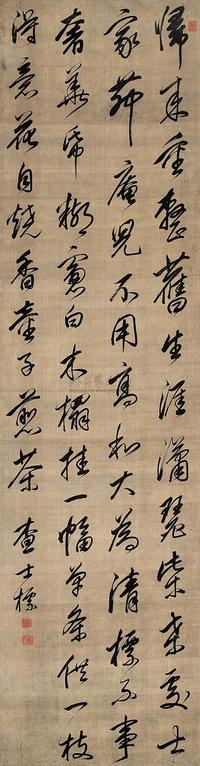 歸来重整舊生涯瀟灑柴桑處士
家茆庵兒不用高和大為清標不事
奢華紙糊窻白木榻挂一幅單条供一枝
得意花自燒香童子煎茶 查士標